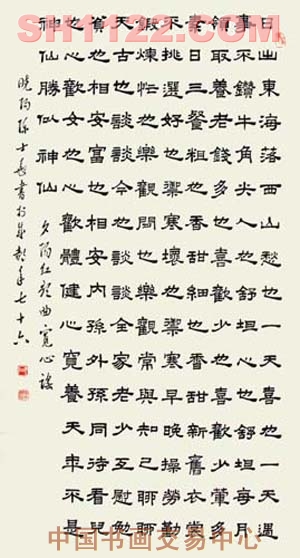 SH1122.COM
日出東海落西山愁也一天喜也一天遇
事不鑽牛角尖人也舒坦心也舒坦每月
領取養老錢多也喜歡少也喜歡少葷多
素日三餐粗也香甜細也香甜新舊衣裳
不挑選好也禦寒壞也禦寒早晚操勞勤
鍛煉忙也樂觀閒也樂觀常與知己聊聊
天古也談談今也談談全家老少互慰勉
貧也相安富也相安內孫外孫同待看兒
也心歡女也心歡體健心寬養天年不是
神仙勝似神仙
夕陽红 曲寬心謠
士 書於 年七十六
中国书画交易中心